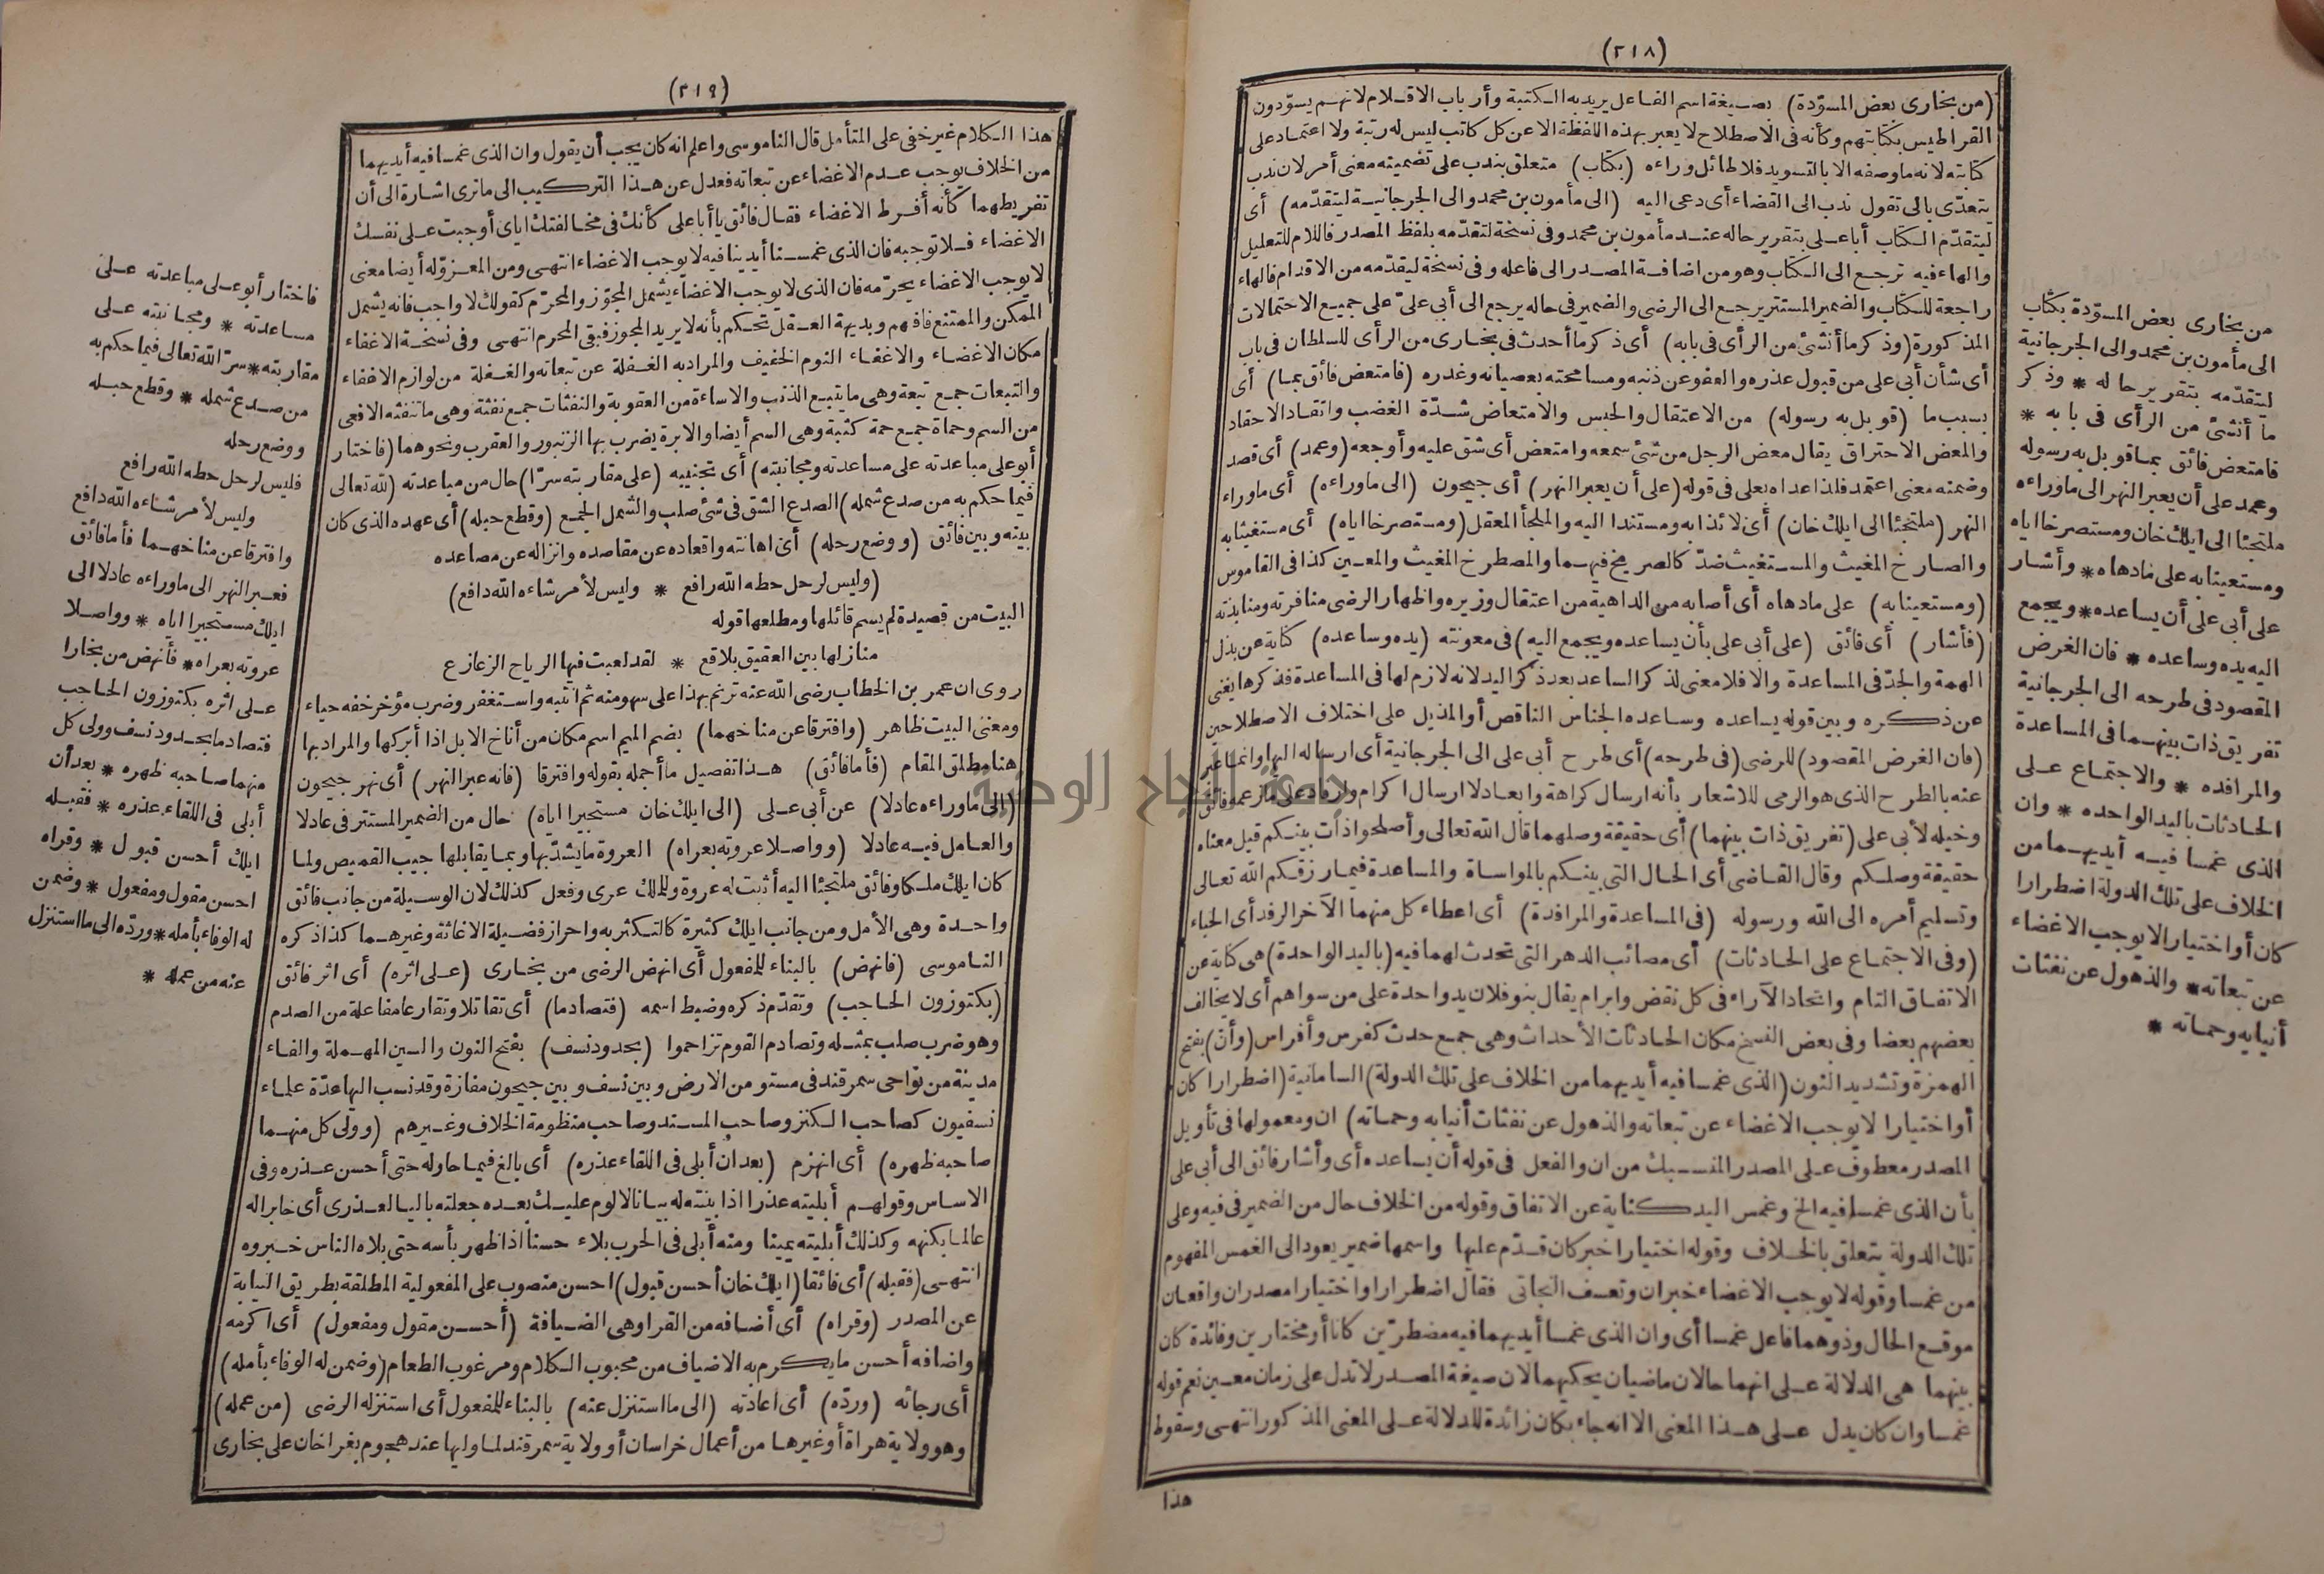 (٢١٨)
(من بخارى بعض المسوّدة) بصيغة اسم الفاعل يريد به الكتبة وأرباب الاقلام لانهم يسوّدون
القراطيس بكتابتهم وكأنه فى الاصطلاح لا يعبر بهذه اللفظة الا عن كل كاتب ليس له رتبة ولا اعتماد على
كتابته لانه ما وصفه الا بالتسويد فلا طائل وراءه (بكتاب) متعلق بندب على تضميته معنى أمر لان ندب
يتعدّى بالى تقول ندب الى القضاء أى دعى اليه (الى مأمون بن محمد والى الجرجانية ليتقدّمه) أى
ليتقدّم الكتاب أبا على بتقرير حاله عند مأمون بن محمد وفى نسخة لتقدّمه بلفظ المصدر فاللام للتعليل
والهاء فيه ترجع الى الكتاب وهو من اضافة المصدر الى فاعله وفى نسخة ليقدّمه من الاقدام فالهاء
راجعة للكتاب والضمير المستتر يرجع الى الرضى والضمير فى حاله يرجع الى أبى علىّ على جميع الاحتمالات
المذكورة (وذكر ما أنشئ من الرأى فى بابه) أى ذكر ما أحدث فى بخارى من الرأى للسلطان فى باب
أى شأن أبى على من قبول عذره والعفو عن ذنبه ومسامحته بعصيانه وغدره (فامتعض فائق بما) أى
بسبب ما (قوبل به رسوله) من الاعتقال والحبس والامتعاض شدّة الغضب واتقاد الاحقاد
والمعض الاحتراق يقال معض الرجل من شئ سمعه وامتعض أى شق عليه وأوجعه (وعمد) أى قصد
وضمنه معنى اعتمد فلذا عداه بعلى فى قوله (على أن يعبر النهر) أى جيحون (الى ماوراءه) أى ماوراء
النهر (ملتجئا الى ايلك خان) أى لائذا به ومستندا اليه والملجأ المعقل (ومستصرخا اياه) أى مستغيثا به
والصارخ المغيث والمستغيث ضدّ كالصريخ فيهما والمصطرخ المغيث والمعين كذا فى القاموس
(ومستعينا به) على مادهاه أى أصابه من الداهية من اعتقال وزيره واظهار الرضى منافرته ومنابذته
(فأشار) أى فائق (على أبى على بأن يساعده ويجمع اليه) فى معونته (يده وساعده) كناية عن بذل
الهمة والجدّ فى المساعدة والا فلا معنى لذكر الساعد بعد ذكر اليد لانه لازم لها فى المساعدة فذكرها يغنى
عن ذكره وبين قوله يساعده وساعده الجناس الناقص أو المذيل على اختلاف الاصطلاحين
(فان الغرض المقصود) للرضى (فى طرحه) أى طرح أبى على الى الجرجانية أى ارساله اليها وانما عبر
عنه بالطرح الذى هو الرمى للاشعار بأنه ارسال كراهة وابعاد لا ارسال اكرام
وخيله لأبى على (تفريق ذات بينهما) أى حقيقة وصلهما قال الله تعالى وأصلحوا ذات بينكم قيل معناه
حقيقة وصلكم وقال القاضى أى الحال التى بينكم بالمواساة والمساعدة فيما رزقكم الله تعالى
وتسليم أمره الى الله ورسوله (فى المساعدة والمرافدة) أى اعطاء كل منهما الآخر الرفد أى الحباء
(وفى الاجتماع على الحادثات) أى مصائب الدهر التى تحدث لهما فيه (باليد الواحدة) هى كناية عن
الاتفاق التام واتحاد الآراء فى كل نقض وابرام يقال بنو فلان يد واحدة على من سواهم أى لا يخالف
بعضهم بعضا وفى بعض النسخ مكان الحادثات الأحداث وهى جمع حدث كفرس وأفراس (وأن) بفتح
الهمزة وتشديد النون (الذى غمسا فيه أيديهما من الخلاف على تلك الدولة) السامانية (اضطرارا كان
أو اختيارا لا يوجب الاغضاء عن تبعاته والذهول عن نفثات أنيابه وحماته) ان ومعمولها فى تأويل
المصدر معطوف على المصدر المنسبك من ان والفعل فى قوله أن يساعده أى وأشار فائق الى أبى على
بأن الذى غمسا فيه الخ وغمس اليد كناية عن الاتفاق وقوله من الخلاف حال من الضمير فى فيه وعلى
تلك الدولة يتعلق بالخلاف وقوله اختيارا خبر كان قدّم عليها واسمها ضمير يعود الى الغمس المفهوم
من غمسا وقوله لا يوجب الاغضاء خبران وتعسف النجاتى فقال اضطرارا واختيارا مصدران واقعان
موقع الحال وذوهما فاعل غمسا أى وان الذى غمسا أيديهما فيه مضطرّين كانا أو مختارين وفائدة كان
بينهما هى الدلالة على انهما حالان ماضيان يحكيهما لان صيغة المصدر لا تدل على زمان معين نعم قوله
غمسا وان كان يدل على هذا المعنى الا انه جاء بكان زائدة للدلالة على المعنى المذكور انتهى وسقوط
هذا
من بخارى بعض المسوّدة بكتاب
الى مأمون بن محمد والى الجرجانية
ليتقدّمه بتقرير حاله * وذكر
ما أنشئ من الرأى فى بابه *
فامتعض فائق بما قوبل به رسوله
وعمد على أن يعبر النهر الى ماوراءه
ملتجئا الى ايلك خان ومستصرخا اياه
ومستعينا به على مادهاه * وأشار
على أبى على أن يساعده * ويجمع
اليه يده وساعده * فان الغرض
المقصود فى طرحه الى الجرجانية
تفريق ذات بينهما فى المساعدة
والمرافده * والاجتماع على
الحادثات باليد الواحده * وان
الذى غمسا فيه أيديهما من
الخلاف على تلك الدولة اضطرارا
كان أو اختيارا لا يوجب الاغضاء
عن تبعاته * والذهول عن نفثات
أنيابه وحماته *
(٢١٩)
هذا الكلام غير خفى على المتأمل قال الناموسى واعلم انه كان يجب أن يقول وان الذى غمسا فيه أيديهما
من الخلاف يوجب عدم الاغضاء عن تبعاته فعدل عن هذا التركيب الى ماترى اشارة الى أن
تفريطهما كأنه أفرط الاغضاء فقال فائق يا أبا على كأنك فى مخالفتك اياى أوجبت على نفسك
الاغضاء فلا توجبه فان الذى غمسنا أيدينا فيه لا يوجب الاغضاء انتهى ومن المعزوّ له أيضا معنى
لا يوجب الاغضاء يحرّمه فان الذى لا يوجب الاغضاء يشمل المجوّز والمحرّم كقولك لا واجب فانه يشمل
الممكن والممتنع فافهم وبديهة العقل تحكم بأنه لا يريد المجوز فبقى المحرم انتهى وفى نسخة الاغفاء
مكان الاغضاء والاغفاء النوم الخفيف والمراد به الغفلة عن تبعاته والغفلة من لوازم الاغفاء
والتبعات جمع تبعة وهى ما يتبع الذنب والاساءة من العقوبة والنفثات جمع نفثة وهى ما تنفثه الافعى
من السم وحماة جمع حمة كثبة وهى السم أيضا والابرة يضرب بها الزنبور والعقرب ونحوهما (فاختار
أبو على مباعدته على مساعدته ومجانبته) أى تجنيبه (على مقاربته سرّا) حال من مباعدته (لله تعالى
فيما حكم به من صدع شمله) الصدع الشق فى شئ صلب والشمل الجمع (وقطع حبله) أى عهده الذى كان
بينه وبين فائق (ووضع رحله) أى اهانته واقعاده عن مقاصده وانزاله عن مصاعده
(وليس لرحل حطه الله رافع * وليس لأمر شاءه الله دافع)
البيت من قصيدة لم يسم قائلها ومطلعها قوله
منازلها بين العقيق بلاقع * لقد لعبت فيها الرياح الزعازع
روى ان عمر بن الخطاب رضى الله عنه ترنم بهذا على سهو منه ثم انتبه واستغفر وضرب مؤخر خفه حياء
ومعنى البيت ظاهر (وافترقا عن مناخهما) بضم الميم اسم مكان من أناخ الابل اذا أبركها والمراد بها
هنا مطلق المقام (فأما فائق) هذا تفصيل ما أجمله بقوله وافترقا (فانه عبر النهر) أى نهر جيحون
(الى ماوراءه عادلا) عن أبى على (الى ايلك خان مستجيرا اياه) حال من الضمير المستتر فى عادلا
والعامل فيه عادلا (وواصلا عروته بعراه) العروة ما يشدّ بها وبما يقابلها جيب القميص ولما
كان ايلك ملكا وفائق ملتجئا اليه أثبت له عروة وللملك عرى وفعل كذلك لان الوسيلة من جانب فائق
واحدة وهى الأمل ومن جانب ايلك كثيرة كالتكثر به واحراز فضيلة الاغاثة وغيرهما كذا ذكره
الناموسى (فانهض) بالبناء للمفعول أى انهض الرضى من بخارى (على اثره) أى اثر فائق
(بكتوزون الحاجب) وتقدّم ذكره وضبط اسمه (فتصادما) أى تقاتلا وتقارعا مفاعلة من الصدم
وهو ضرب صلب بمثله وتصادم القوم تزاحموا (بحدود نسف) بفتح النون والسين المهملة والفاء
مدينة من نواحى سمرقند فى مستو من الارض وبين نسف وبين جيحون مفازة وقد نسب اليها عدّة علماء
نسفيون كصاحب الكنز وصاحب المسند وصاحب منظومة الخلاف وغيرهم (وولى كل منهما
صاحبه ظهره) أى انهزم (بعد ان أبلى فى اللقاء عذره) أى بالغ فيما حاوله حتى أحسن عذره وفى
الاساس وقولهم أبليته عذرا اذا بينته له بيانا لا لوم عليك بعده جعلته باليا لعذرى أى خابرا له
عالما بكنهه وكذلك أبليته يمينا ومنه أبلى فى الحرب بلاء حسنا اذا ظهر بأسه حتى بلاه الناس خبروه
انتهى (فقبله) أى فائقا (ايلك خان أحسن قبول) احسن منصوب على المفعولية المطلقة بطريق النيابة
عن المصدر (وقراه) أى أضافه من القرا وهى الضيافة (أحسن مقول ومفعول) أى اكرمه
واضافه أحسن ما يكرم به الاضياف من محبوب الكلام ومرغوب الطعام (وضمن له الوفاء بأمله)
أى رجائه (وردّه) أى اعادته (الى ما استنزل عنه) بالبناء للمفعول أى استنزله الرضى (من عمله)
وهو ولاية هراة أو غيرها من أعمال خراسان أو ولاية سمرقند لما وليها عند هجوم بغراخان على بخارى
فاختار أبو على مباعدته على
مساعدته * ومجانبته على
مقاربته * سرّ الله تعالى فيما حكم به
من صدع شمله * وقطع حبله
ووضع رحله
فليس لرحل حطه الله رافع
وليس لأمر شاءه الله دافع
وافترقا عن مناخهما فأما فائق
فعبر النهر الى ماوراءه عادلا الى
ايلك مستجيرا اياه * وواصلا
عروته بعراه * فأنهض من بخارا
على اثره بكتوزون الحاجب
فتصادما بحدود نسف وولى كل
منهما صاحبه ظهره * بعد أن
أبلى فى اللقاء عذره * فقبله
ايلك أحسن قبول * وقراه
احسن مقول ومفعول * وضمن
له الوفاء بأمله * وردّه الى ما استنزل
عنه من عمله *
جامعة النجاح الوطنية